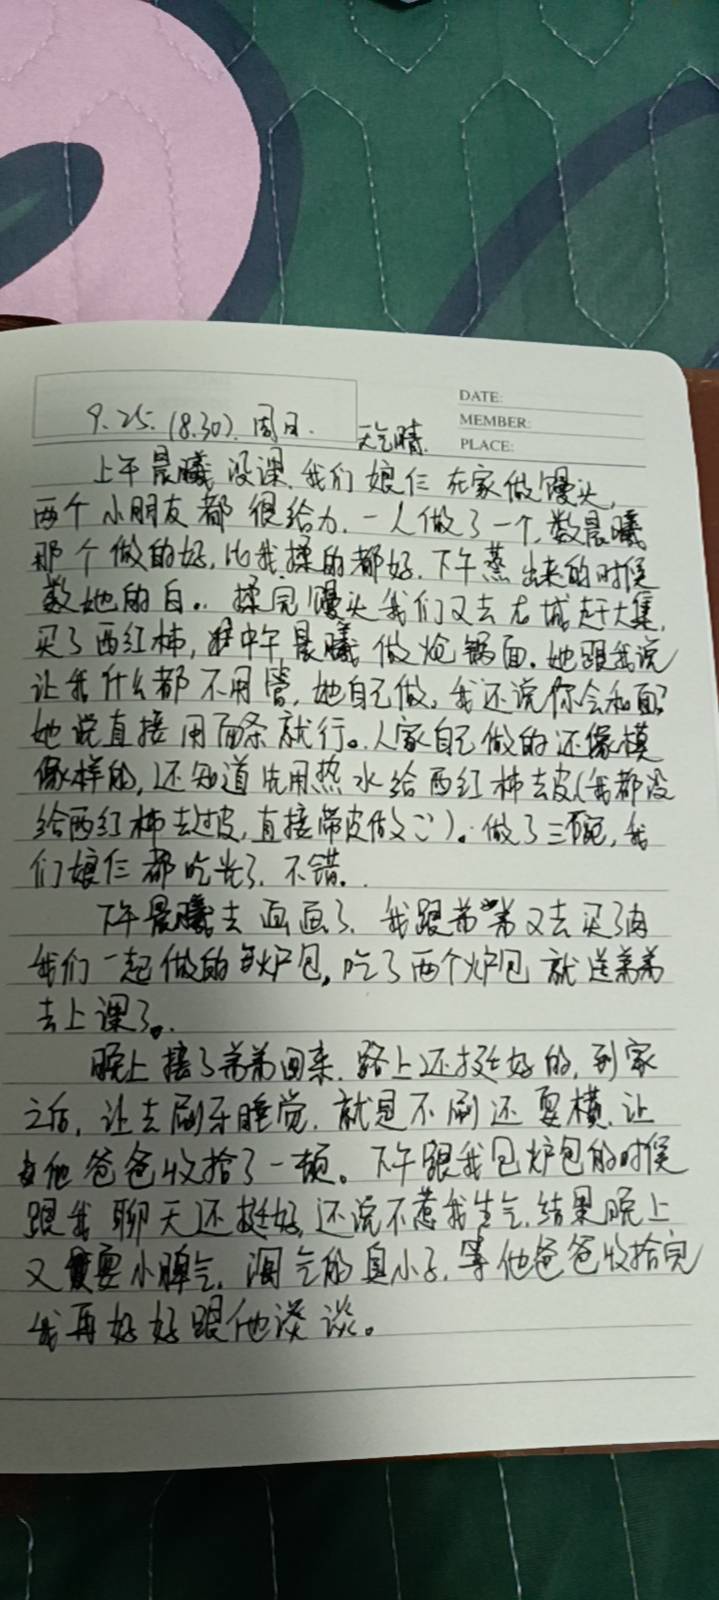 DATE:
MEMBER:
PLACE:
9.25.(8.30). 周日. 天气晴.
上午晨曦没课.我们娘仨在家做馒头,
两个小朋友都很给力.一人做了一个,数晨曦
那个做的好,比我揉的都好.下午蒸出来的时候
数她的白。揉完馒头我们又去古城赶大集,
买了西红柿,准中午晨曦做炝锅面.她跟我说
让我什么都不用管,她自己做,我还说你会和面?
她说直接用面条就行。人家自己做的还像模
像样的,还知道先用热水给西红柿去皮(我都没
给西红柿去过皮,直接带皮做)。做了三碗,我
们娘仨都吃光了.不错.
下午晨曦去画画了.我跟弟弟又去买了肉
我们一起做的炉包,吃了两个炉包就送弟弟
去上课了。
晚上接了弟弟回来.路上还挺好的,到家
之后,让去刷牙睡觉.就是不刷还耍横,让
他爸爸收拾了一顿。下午跟我包炉包的时候
跟我聊天还挺好,还说不惹我生气.结果晚上
又耍小脾气.淘气的臭小子.等他爸爸收拾完
我再好好跟他谈谈。